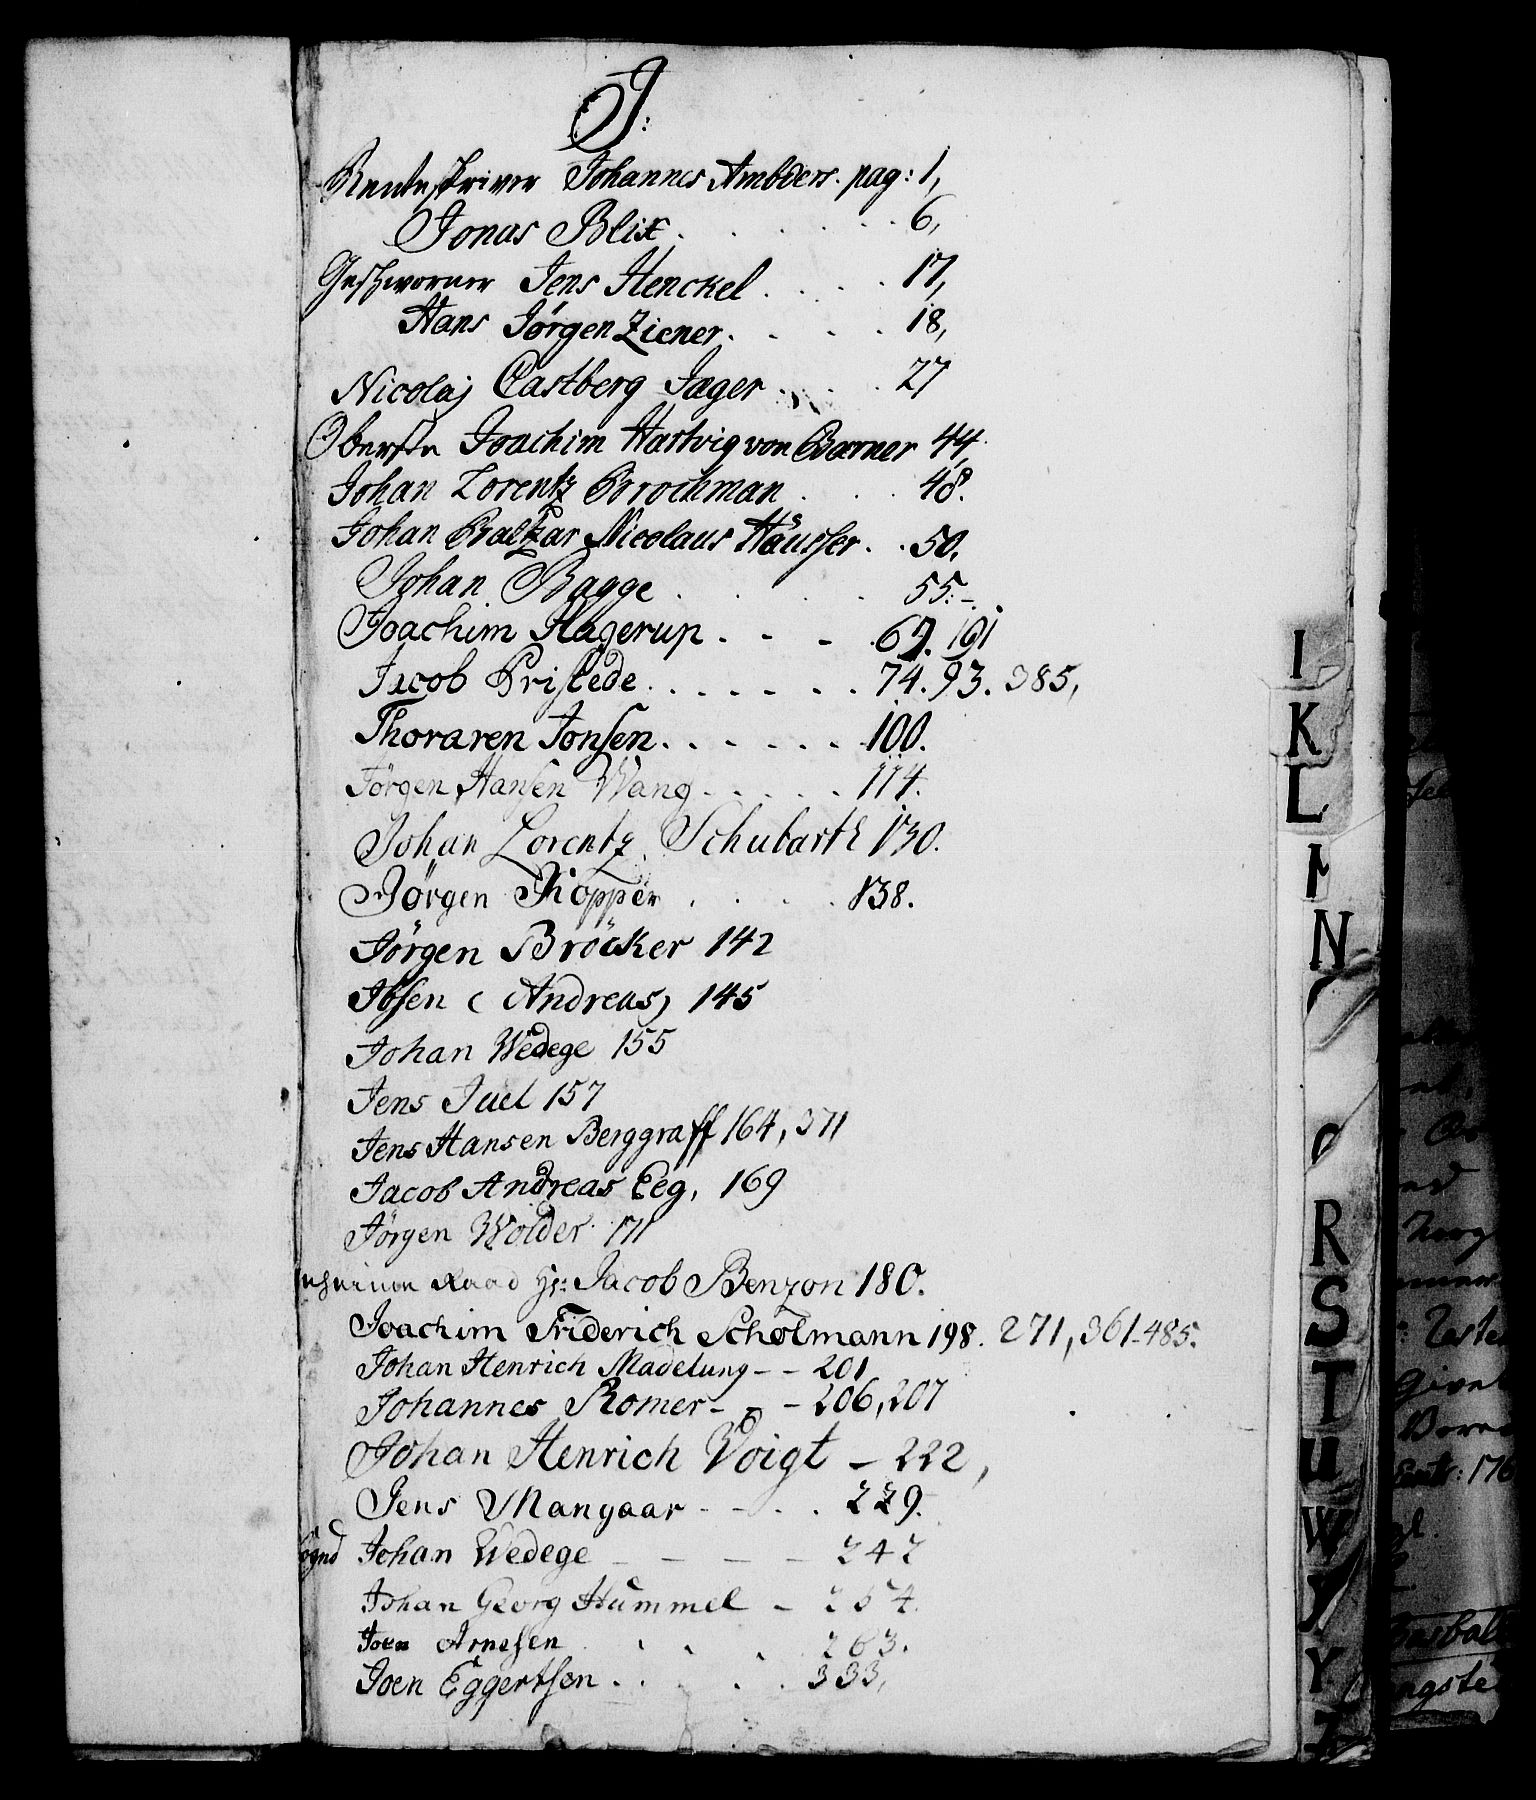 J:
Renteskriver Johannes Ambders. pag: 1,
Jonas Blix. . . . . . 6,
Geschworner Jens Henckel . . . . 17,
Hans Jørgen Ziener. . . . 18,
Nicolaj Castberg Jæger . . . 27
Oberste Joachim Hartvig von Barner 44,
Johan Lorentz Brochman . . . 48.
Johan Baltzar Nicolaus Häusser. . 50.
Johan Bagge . . . . 55:-
Joachim Hagerup . - - 67. 191
Jacob Pristede. . . . . . . 74. 93. 385,
Thoraren Jonsen. . . . . . 100.
Jørgen Hansen Wang - . . . . 114.
Johan Lorentz Schubarth 130.
Jørgen Kiopper . . . . 138.
Jørgen Bröcker 142
Ibsen (Andreas) 145
Johan Wedege 155
Jens Juel 157
Jens Hansen Berggraff 164, 371
Jacob Andreas Eeg, 169
Jørgen Wolder. 171
Raad Hr: Jacob Benzon 180.
Joachim Friderich Scholmann 198. 271, 361-485.
Johan Henrich Madelung - - 201
Johannes Romer - - - 206, 207
Johan Henrich Voigt - 222,
Jens Mangaar - - . . 229.
Johan Wedege - - - - 242
Johan Georg Hummel - 254.
Joen Arnesen . . . . 263.
Joen Eggertsen . . . . 333,
I
K
L
N
R
S
T
U
W
Y
Z